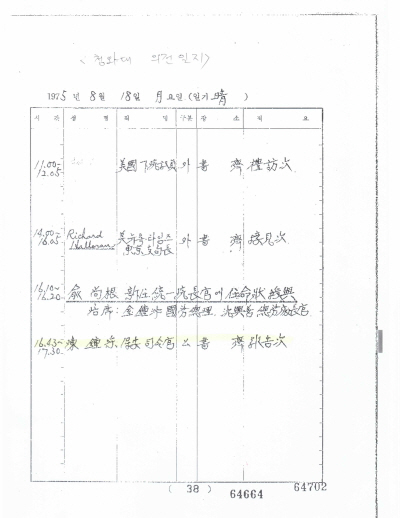 <청와대 의전일지>
1975년 8월 18일 月요일 (일기 晴 )
시 간 성 명 직 명 구분 장 소 개 요
11.00~ 12.05 美國下院議員 外 書 齊 禮訪次
14.00~ 16.05 Richard Halloran 美뉴욕타임즈 東京支局長 外 書 齊 接見次
16.10~ 16.20 兪 尚根 新任 統一院長官에 任命狀 授與
陪席: 金鍾泌 國務總理
16.43~ 17.30 陳 鍾埰 保安司令官 公 書 齊 報告次
( 38 )
64664
64702